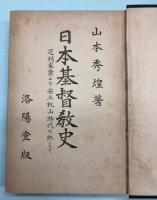 山本秀煌著
日本基督敎史
足利末葉より安土桃山時代の終まで
洛陽堂版